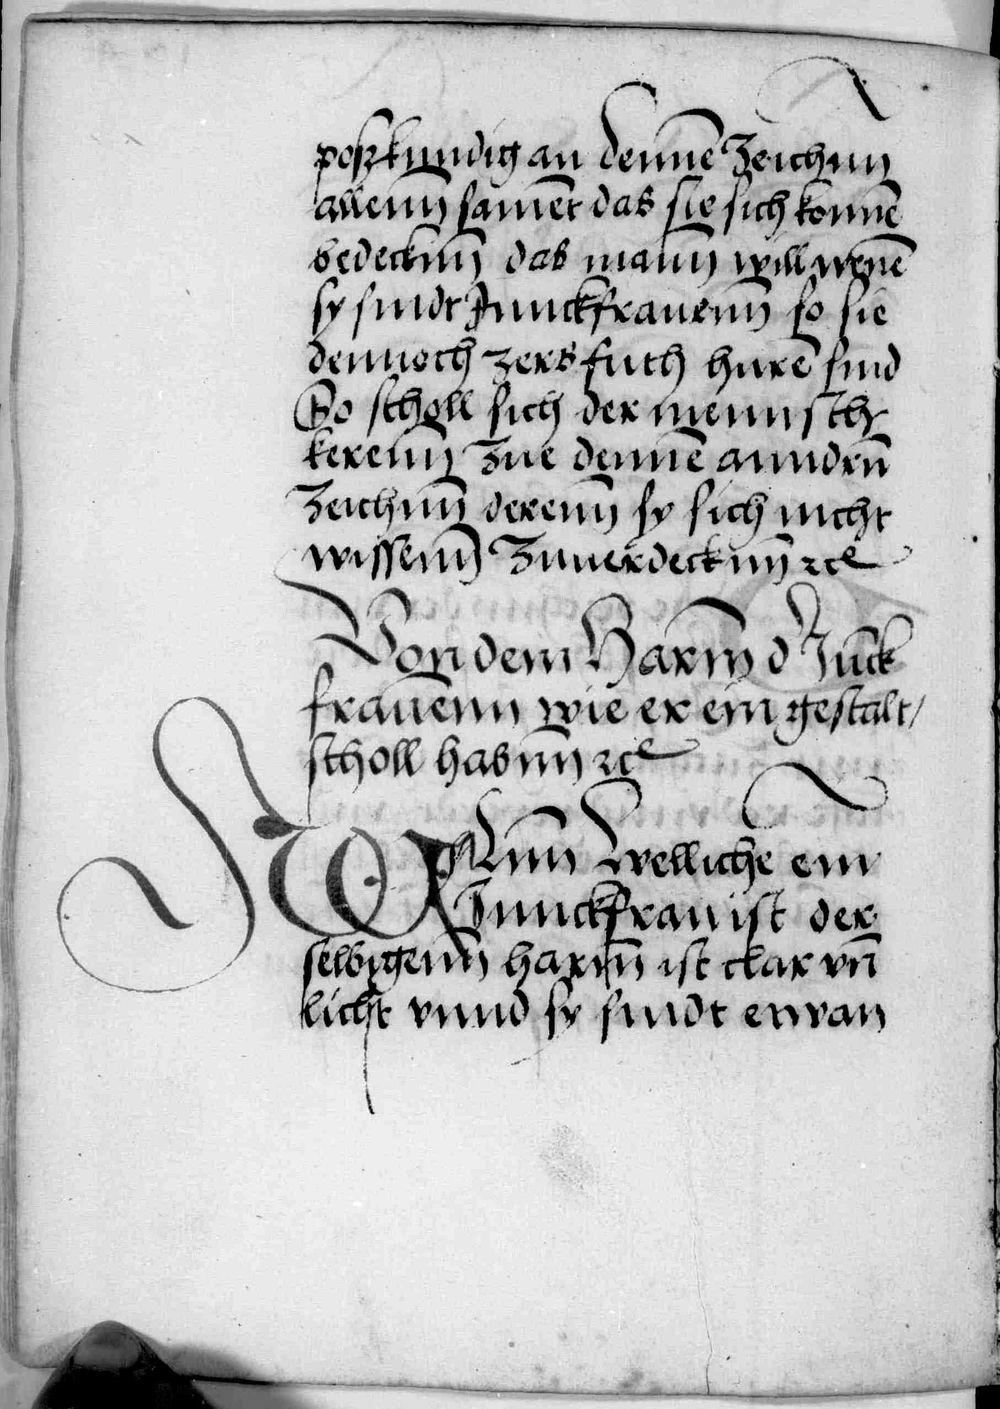 poszkundig an dennē Zeichnn
allenn samēt das sie sich konnē
bedecknn das mann will wenē
sy sindt Junckfrauenn so sie
dennoch zers huren sind
So scholl sich der mennsch
kerenn Zue dennē anndrn̄
Zeichnn derenn sy sich nicht
wissenn Zuuerdecknn ꝛcꝭ
Von dem Harnn d Junck
frauenn wie er ein gestalt/
scholl habnn ꝛcꝭ
welliche ein
Junckfrau ist der
selbigenn harnn ist clar vn̄
licht vnnd sy sindt etwan